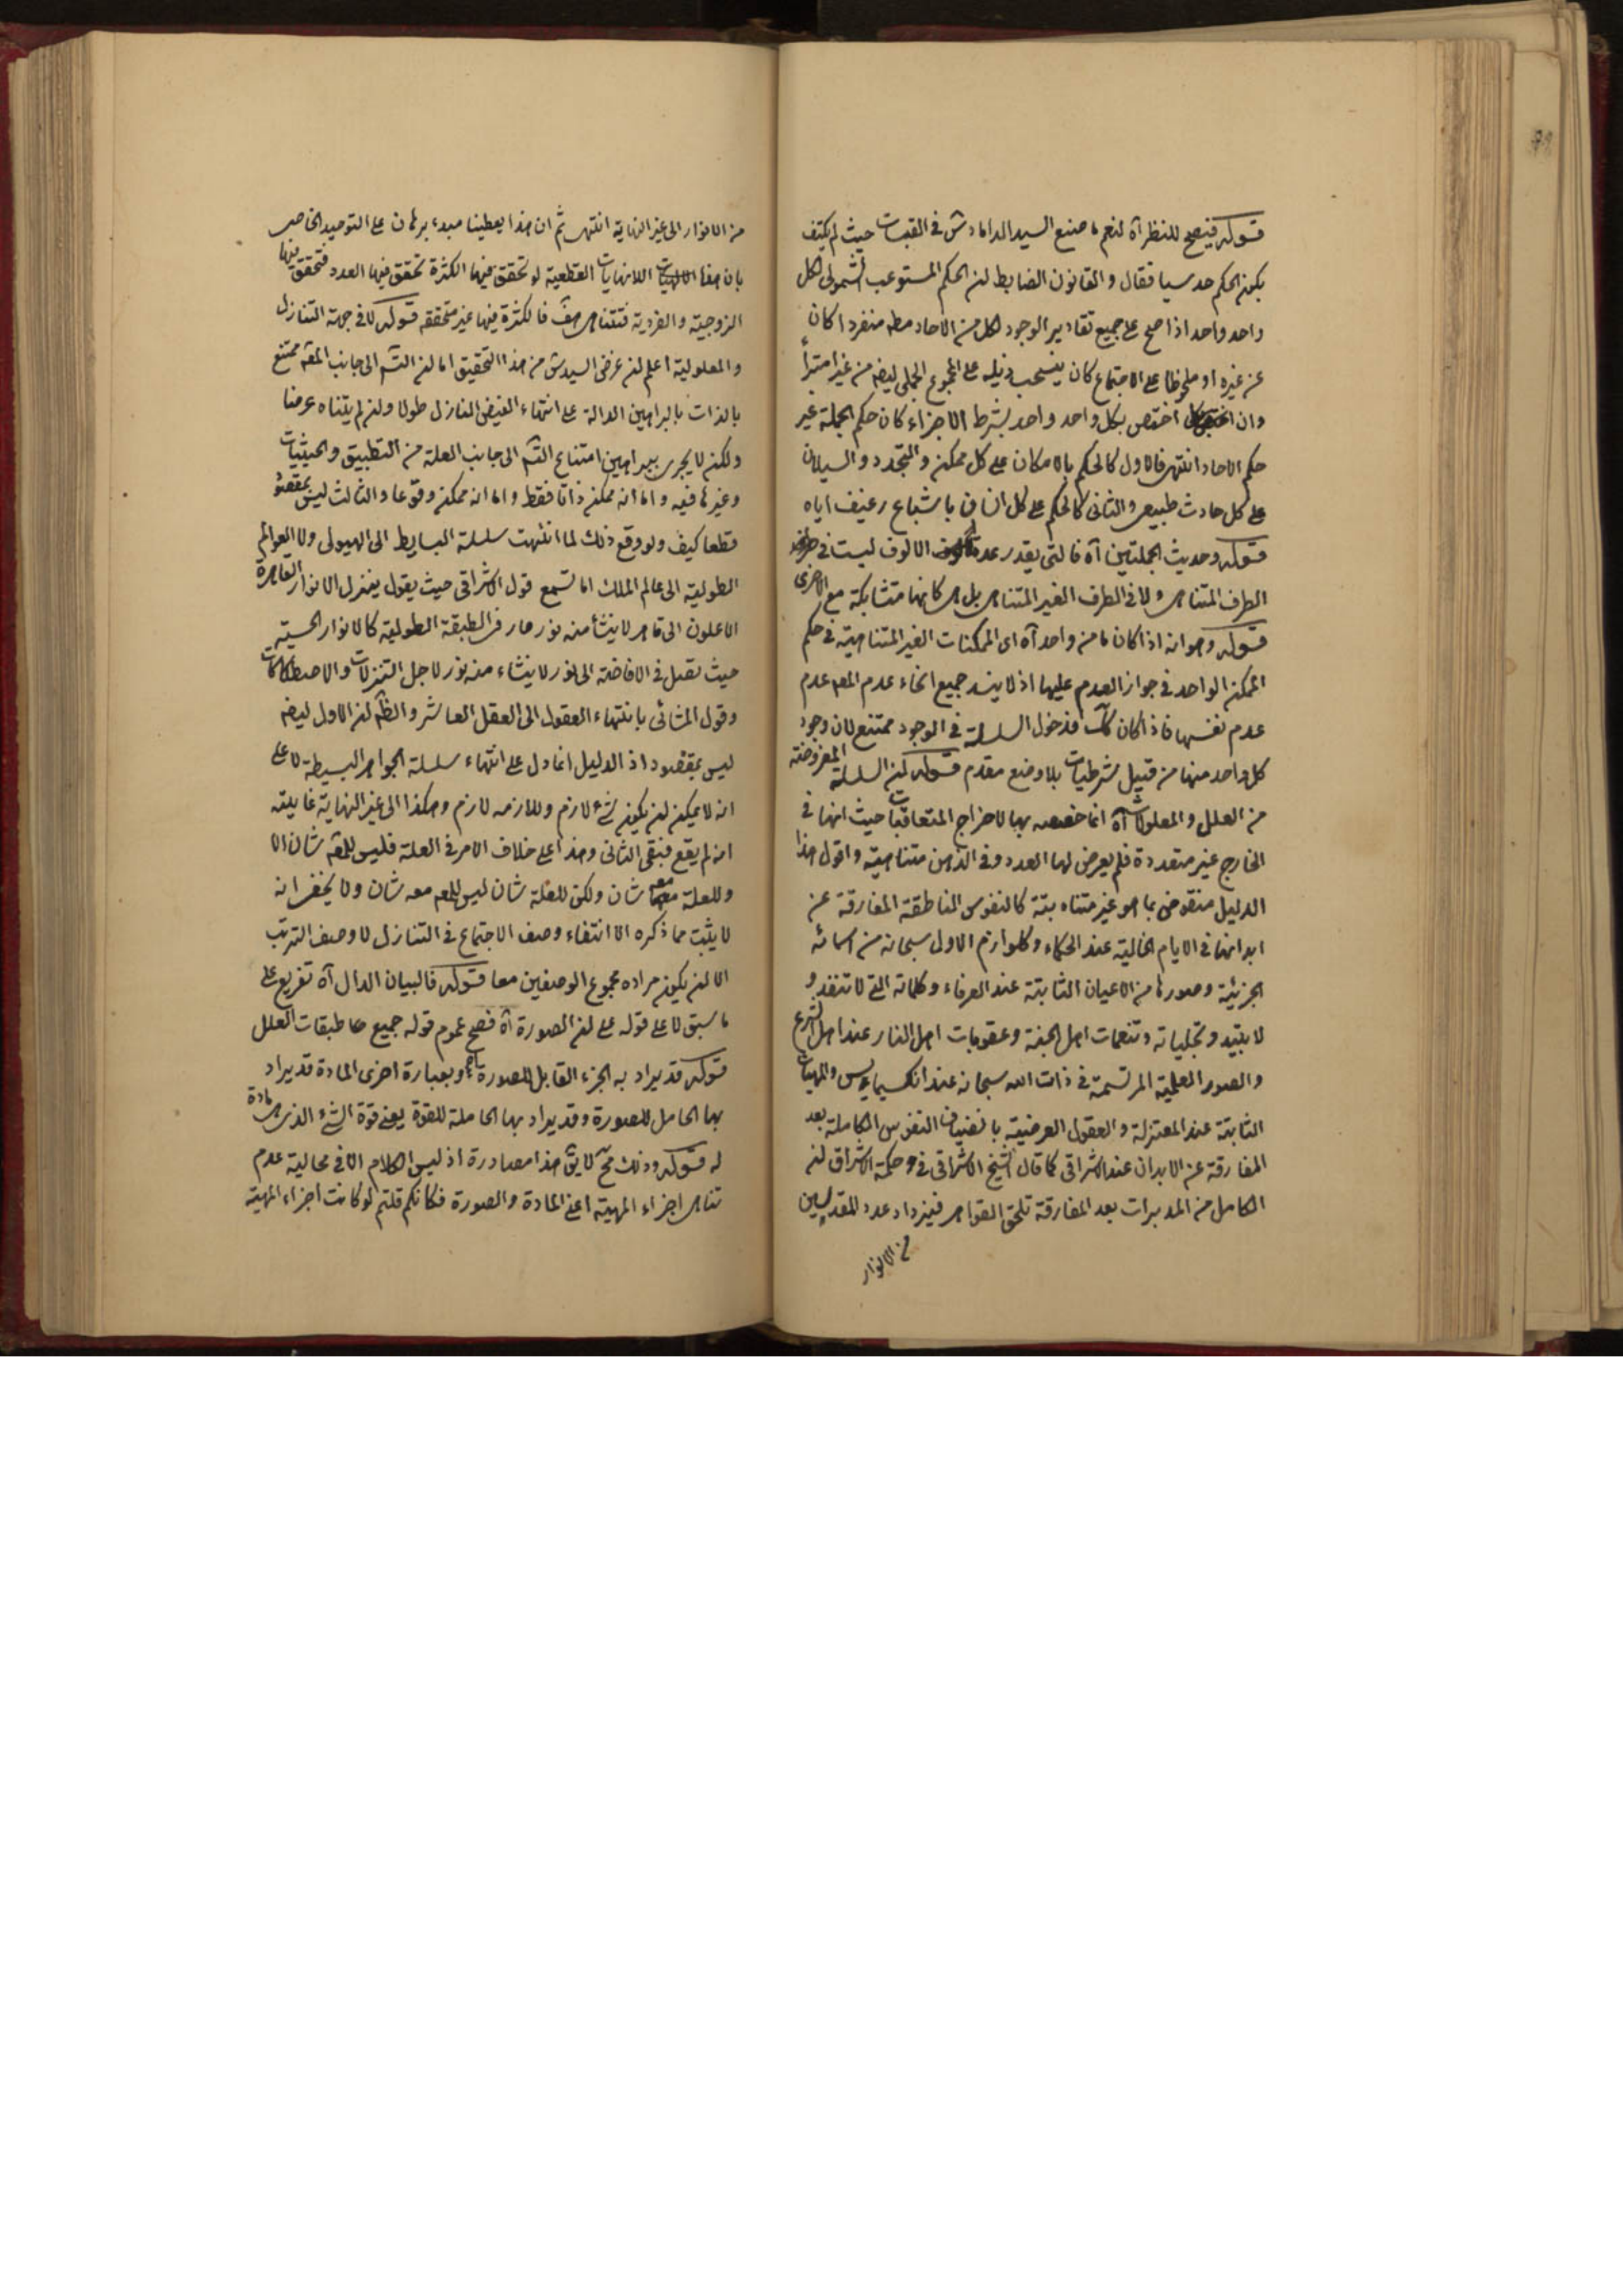 قوله فيصح للنظر آه لنعم ما صنع السيد الداماد ش فى القبسات حيث لم يكتف
بكون الحكم حدسيا فقال و القانون الضابط لن الحكم المستوعب الشمولى لكل
واحد واحد اذا صح على جميع تقادير الوجود لكل من الاحاد مطه منفردا كان
عن غيره او ملحوظا على الاجتماع كان ينسحب ذيله على المجموع الجملى ايضه من غير امتراء
وان اختص بكل واحد واحد بشرط الاجزاء كان حكم الجملة غير
حكم الاحاد انتهى فالاول كالحكم بالامكان على كل ممكن و التجدد و السيلان
على كل حادث طبيعى و الثانى كالحكم على كل انسان باشباع رغيف اياه
قوله وحديث الجملتين آه فالتى بقدر عدة الالوف ليست فى
الطرف المتناهى ولا فى الطرف الغير المتناهى بل هى كانها متشابكة مع الاخرى
قوله وهو انه اذا كان ما من واحد آه اى الممكنات الغير المتناهية فى حكم
الممكن الواحد فى جواز العدم عليها اذ لا ينسد جميع انحاء عدم المعه عدم
عدم نفسها فاذا كان كك فدخول السلسلة فى الوجود ممتنع لان وجود
كل واحد منها من قبيل شرطيات بلا وضع مقدم قوله لن السلسلة المفروضة
من العلل و المعلولات آه انما خصصه بها لاخراج المتعاقبات حيث انها فى
الخارج غير متعددة فلم يعرض لها العدد وفى الذهن متناهية و اقول هذا
الدليل منقوض بما هو غير متناه بتة كالنفوس الناطقة المفارقة عن
ابدانها فى الايام الخالية عند الحكماء و كلوازم الاول سبحانه من اسمائه
الجزئية و صورها من الاعيان الثابتة عند العرفاء و كلماته التى لا تنفد و
لا تبيد و تجلياته و تنعمات اهل الجنة و عقوبات اهل النار عند اهل الشرع
و الصور العلمية المرتسمة فى ذات الله سبحانه عند انكسيمايس و المهيات
الثابتة عند المعتزلة و العقول العرضية بانضياف النفوس الكاملة بعد
المفارقة عن الابدان عند الاشراقى كما قال الشيخ الاشراقى فى حكمة الاشراق لن
الكامل من المدبرات بعد المفارقة تلحق القواهر فيزداد عدد المقدسين
من الانوار
من الانوار الى غير النهاية انتهى ثم ان هذا يعطينا مبدء برهان على التوحيد الخاصى
بان هذه اللانهايات القطعية لو تحقق فيها الكثرة تحقق فيها العدد فتحقق فيها
الزوجية و الفردية فتتناهى هف فالكثرة فيها غير متحققه قوله لا فى جهة التنازل
و المعلولية اعلم لن غرض السيد ش من هذا التحقيق اما لن التسه الى جانب المعه ممتنع
بالذات بالبراهين الدالة على انتهاء الفيض النازل طولا و لن لم يتناه عرضا
ولكن لا يجرى ببراهين امتناع التسه الى جانب العلة من التطبيق و الحيثيات
وغيرها فيه و اما انه ممكن ذاتا فقط و اما انه ممكن وقوعا و الثالث ليس بمقصود
قطعا كيف ولو وقع ذلك لما انتهت سلسلة البسايط الى الهيولى ولا العوالم
الطولية الى عالم الملك اما تسمع قول الاشراقى حيث يقول ينزل الانوار القاهرة
الاعلون الى قاهر لا ينشأ منه نور هار فى الطبقة الطولية كالانوار الحسية
حيث تصل فى الافاضة الى نور لا ينشاء منه نور لاجل التنزلات و الاصطكاكات
وقول المشائى بانتهاء العقول الى العقل العاشر و الظه لن الاول ايضه
ليس بمقصود اذ الدليل انما دل على انتهاء سلسلة الجواهر البسيطة لا على
انه لا يمكن لن يكون لشئ لازم و للازمه لازم و هكذا الى غير النهاية غايته
انه لم يقع فبقى الثانى و هذا على خلاف الامر فى العلة فليس للمعه شان الا
و للعلة معه شان ولكن للعلة شان ليس للمعه معه شان ولا يخفى انه
لا يثبت مما ذكره الا انتفاء وصف الاجتماع فى التنازل لا وصف الترتب
الا لن يكون مراده مجموع الوصفين معا قوله فالبيان الدال آه تفريع على
ما سبق لا على قوله على لن الصورة آه فصح عموم قوله جميع طبقات العلل
قوله قد يراد به الجزء القابل للصورة آه وبعبارة اخرى المادة قد يراد
بها الحامل للصورة و قد يراد بها الحاملة للقوة يعنى قوة الشئ الذى هى مادة
له قوله و ذلك مح لا يق هذا مصادرة اذ ليس الكلام الا فى محالية عدم
تناهى اجزاء المهية اعنى المادة و الصورة فكانكم قلتم لو كانت اجزاء المهية